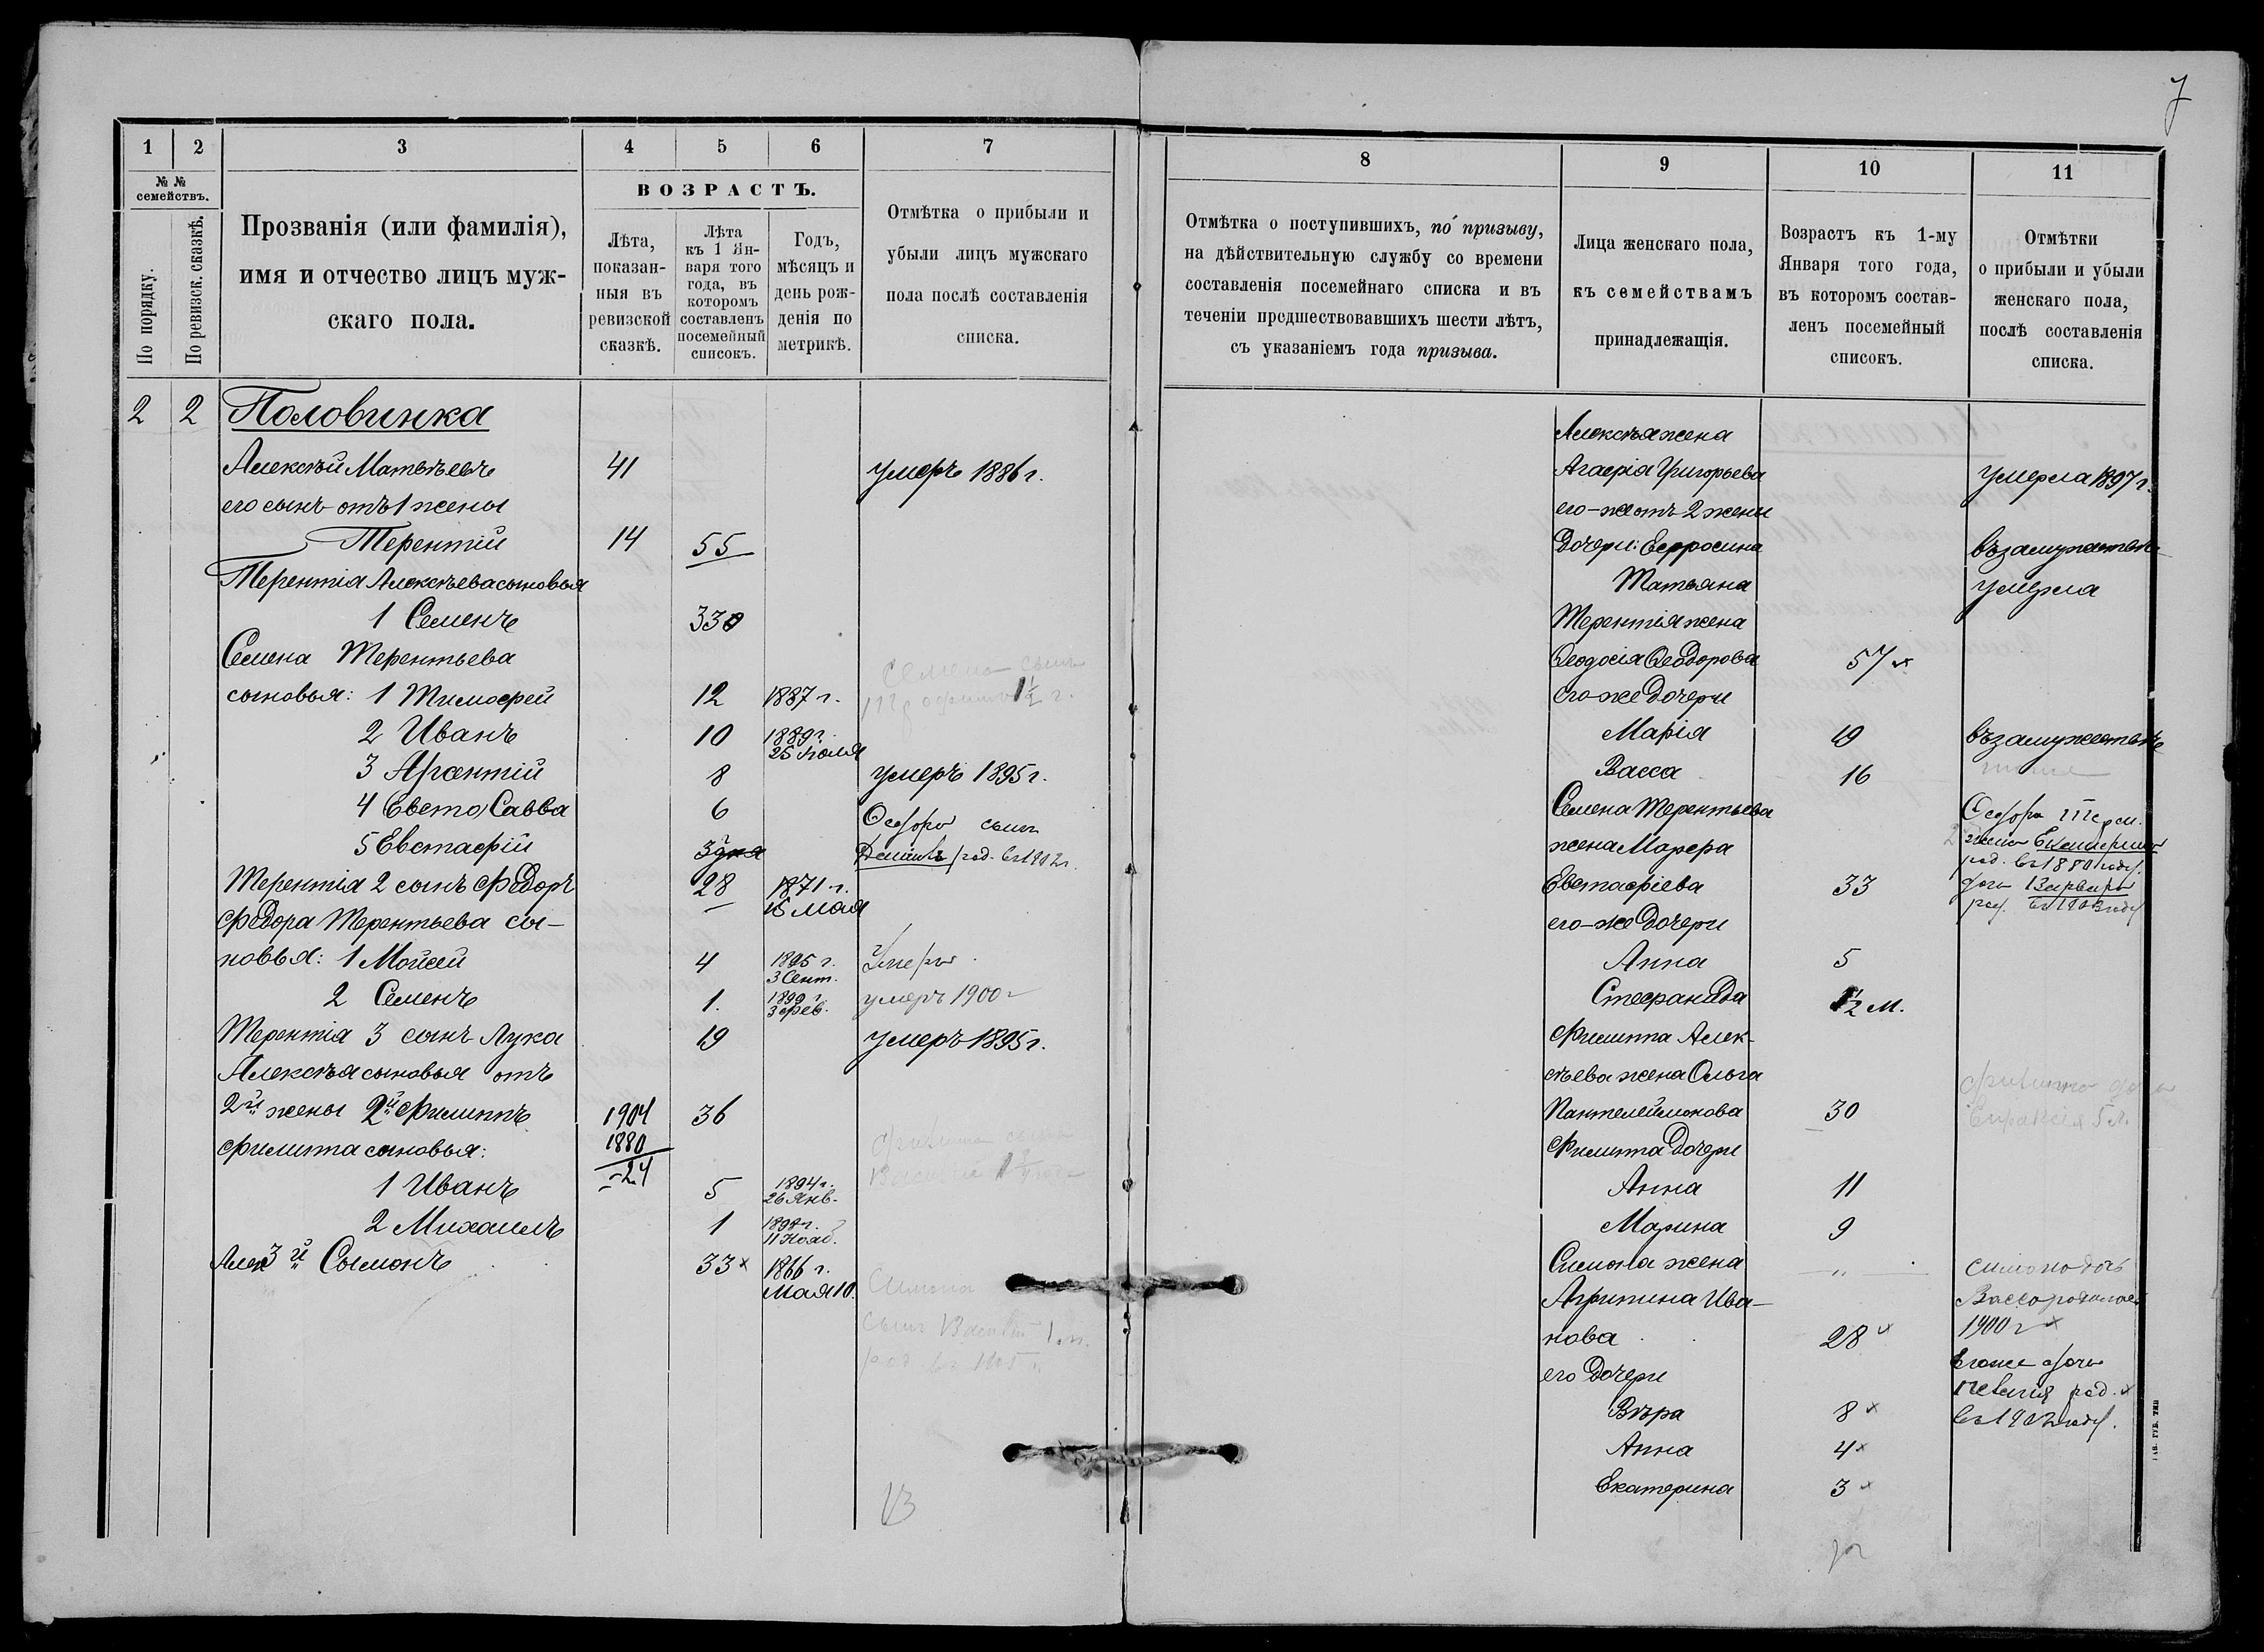 7
1 2 3 4 5 6 7
№ № семействъ.
По порядку.
По ревизск. сказкѣ.
Прозванія (или фамилія),
имя и отчество лицъ муж-
скаго пола.
ВОЗРАСТЪ.
Лѣта,
показан-
ныя въ
ревизской
сказкѣ.
Лѣта
къ 1 Ян-
варя того
года, въ
которомъ
составленъ
посемейный
списокъ.
Годъ,
мѣсяцъ и
день рож-
денія по
метрикѣ.
Отмѣтка о прибыли и
убыли лицъ мужскаго
пола послѣ составленія
списка.
2 2 Половинка
Алексѣй Матвѣевъ 41 умеръ 1886 г.
его сынъ отъ 1 жены
Терентій 14 55
Терентія Алексѣева сыновья
1 Семенъ 33
Семена Терентьева Семена сынъ
сыновья: 1 Тимофей 12 1887 г. 1½ г.
2 Иванъ 10 1889 г.
25 Іюля
3 Агантій 8 умеръ 1895 г.
4 Савва 6 Федора сынъ
5 Евстафій 3 дня род. въ 1902 г.
Терентія 2 сынъ Федоръ 28 1871 г.
15 Мая
Федора Терентьева сы-
новья: 1 Мойсей 4 1895 г. Умеръ
3 Сент.
2 Семенъ 1. 1899 г. умеръ 1900 г
3 фев.
Терентія 3 сынъ Лука 19 умеръ 1895 г.
Алексѣя сыновья отъ
2й жены 2й Филиппъ 1904 36
Филиппа сыновья: 1880 Филиппа сынъ
24
1 Иванъ 5 1894 г.
26 Янв.
2 Михаилъ 1 1898 г.
11 Нояб.
Алек 3й Сымонъ 33 x 1866 г. Симона
Мая 10.
сынъ Василій 1 л.
род. въ 1905 г.
13
8 9 10 11
Отмѣтка о поступившихъ, по призыву,
на дѣйствительную службу со времени
составленія посемейнаго списка и въ
теченіи предшествовавшихъ шести лѣтъ,
съ указаніемъ года призыва.
Лица женскаго пола,
къ семействамъ
принадлежащія.
Возрастъ къ 1-му
Января того года,
въ которомъ состав-
ленъ посемейный
списокъ.
Отмѣтки
о прибыли и убыли
женскаго пола,
послѣ составленія
списка.
Алексѣя жена
Агафія Григорьева умерла 1897 г.
его-же отъ 2 жены
Дочери: Евфросина въ замужествѣ
Татьяна умерла
Терентія жена
Феодосія Феодорова 57 x
его же Дочери
Марія 19 въ замужествѣ
Васса 16 тоже
Семена Терентьева Федора Терен.
жена Марфа 2 жена Екатерина
род. въ 1880 году.
Евстафіева 33 дочь Варвара
род. въ 1903 году
его-же Дочери
Анна 5
Стефанида ½ м.
Филиппа Алек-
сѣева жена Ольга Филиппа дочь
Пантелеймонова 30 5 л.
Филиппа Дочери
Анна 11
Марина 9
Симона жена " симона дочь
Агрипина Ива- Васса родилась
нова 28 x 1900 г x
его Дочери Егоже дочь
Пелагія род. x
Вѣра 8 x въ 1902 году.
Анна 4 x
Екатерина 3 x